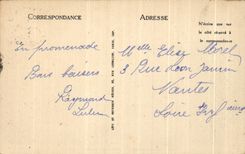 CORRESPONDANCE
ADRESSE
N'écrire que sur
le côté réservé à
la correspondance
En promenade
Bons baisers
Raymond
Melle Elise Morel
3 Rue Léon Jamin
Nantes
Loire Inférieure